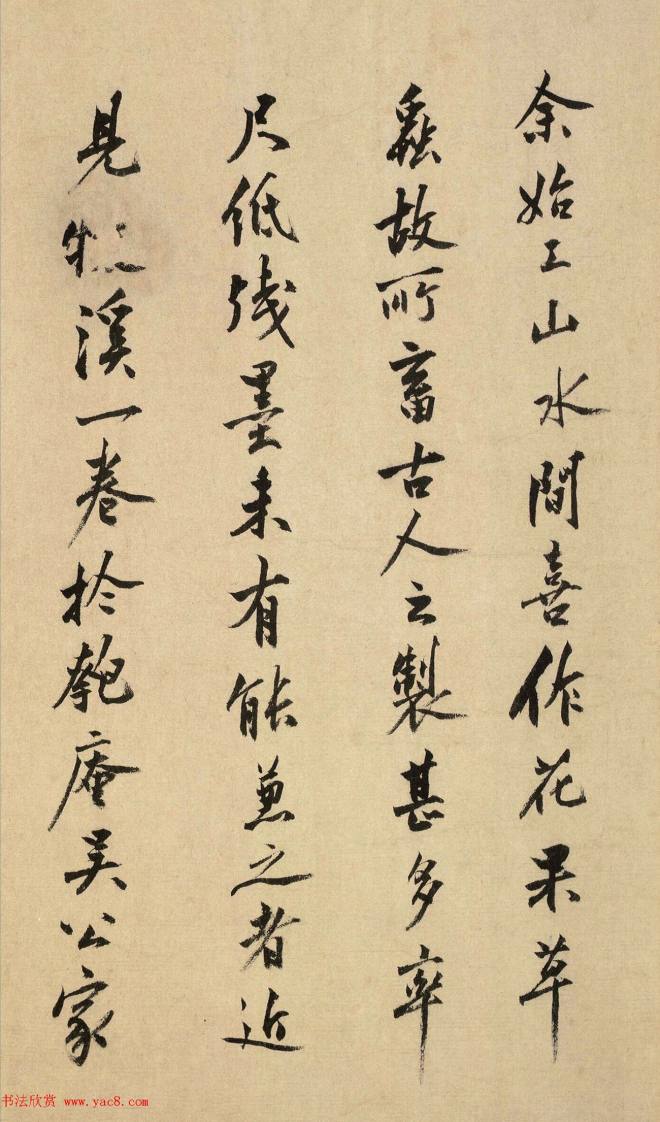 余始工山水間喜作花果草
蟲故所畜古人之製甚多率
尺紙殘墨未有能兼之者近
見牧溪一卷於匏庵吳公家
书法欣赏 www.yac8.com